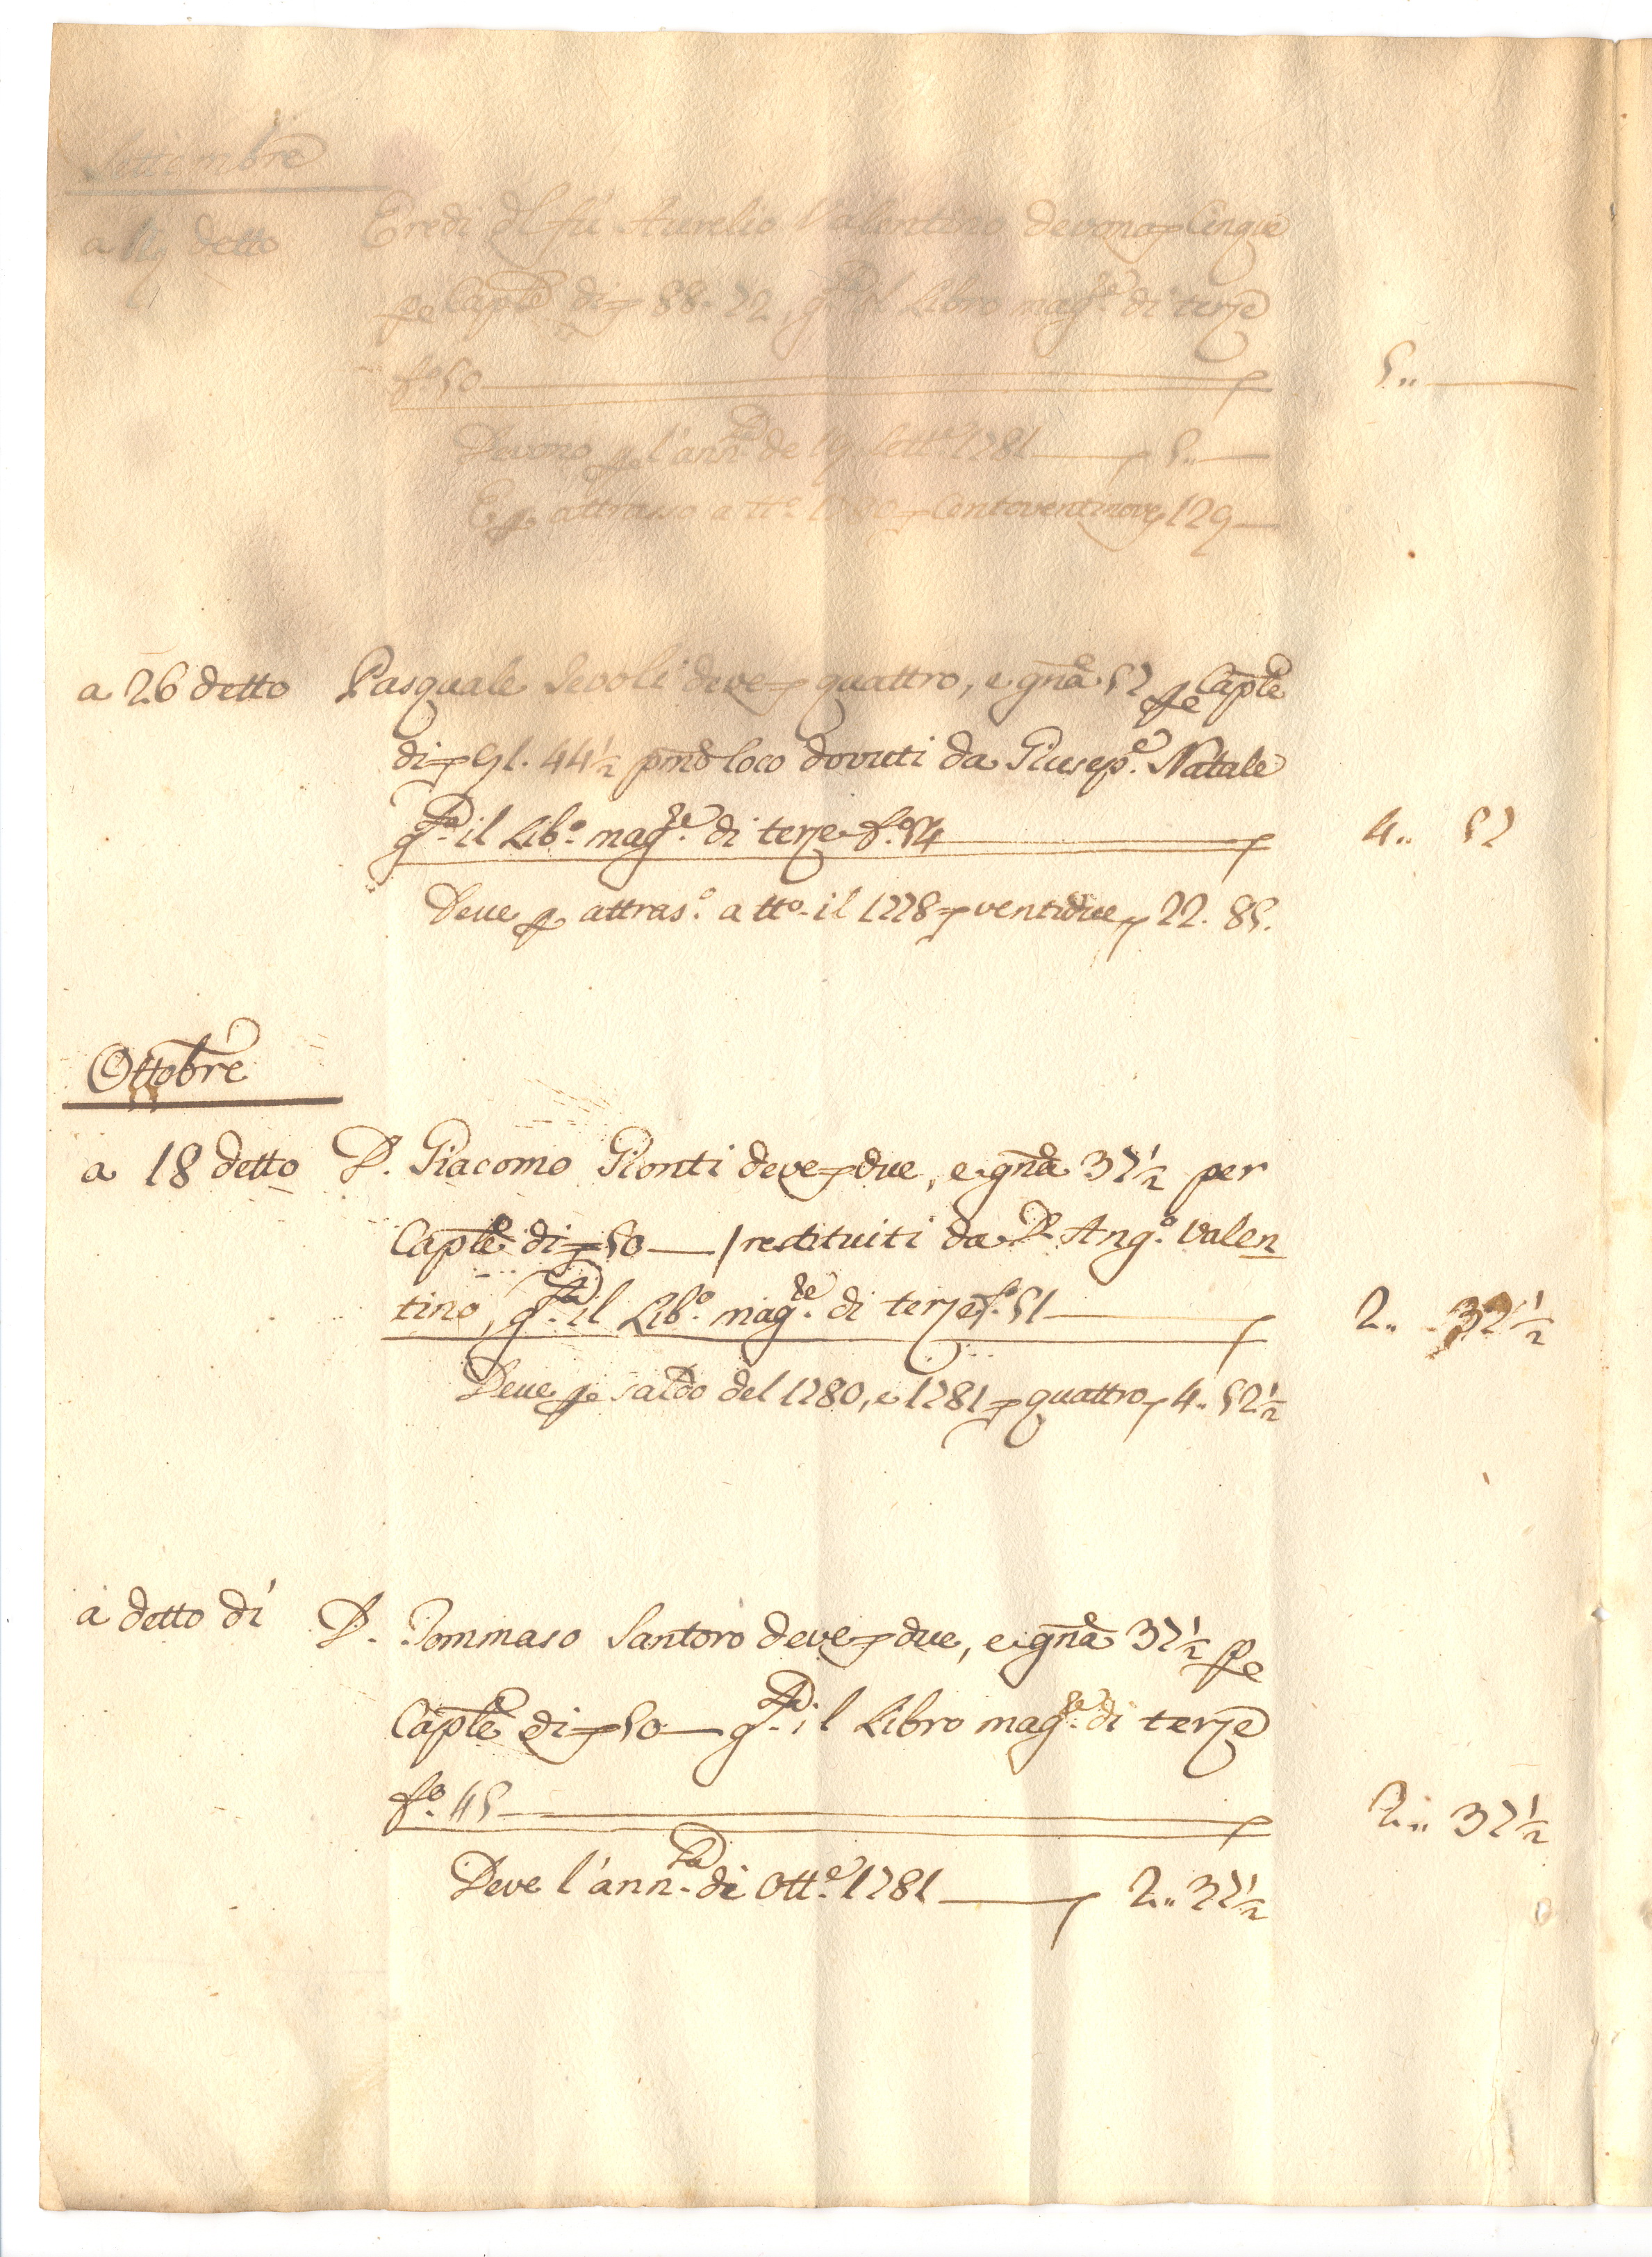 Settembre
a 19 detto Eredi del fù Aurelio Valentino devono Cinque
pe Caple di 88-72, gta il Libro magre di terze
fo 50 5..
Devono pe l'annta de 19 Sette 1781 5..
E pe attrasso a tto 1780 Centoventinove 129
a 26 detto Pasquale Sevoli deve quattro, e gna 57 pe Caple
di 91. 44½ pmo loco dovuti da Giusepe Natale
gta il Libo magre di terze fo 54 4.. 57
Deve pe attraso a tto il 1778 ventidue 22. 85.
Ottobre
a 18 detto D. Giacomo Gionti deve due, e gna 37½ per
Caple di 50 restituiti da D. Ango Valen
tino, gta il Libo magre di terze fo 51 2.. 37½
Deve pe saldo del 1780, e 1781 quattro 4.. 52½
a detto dì D. Tommaso Santoro deve due, e gna 37½ pe
Caple di 50 gta il Libro magre di terze
fo 45 2.. 37½
Deve l'annta di Otte 1781 2.. 37½